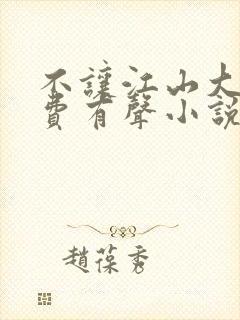 不讓江山大
費有聲小說
趙葆秀